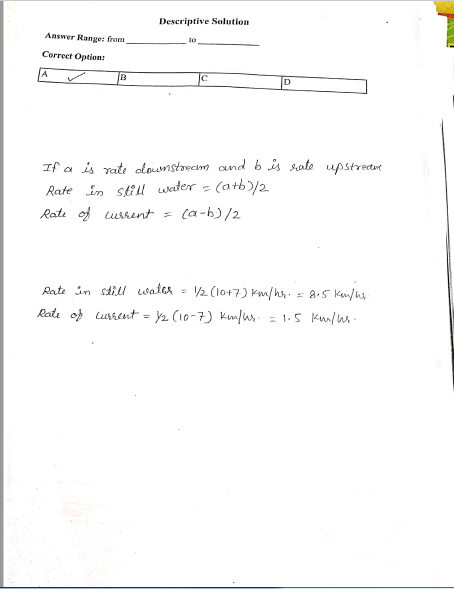 Descriptive Solution
Answer Range: from ____________ to ____________
Correct Option:
A ✓ B C D
If a is rate downstream and b is rate upstream
Rate in still water = (a+b)/2
Rate of current = (a-b)/2
Rate in still water = 1/2 (10+7) Km/hr. = 8.5 Km/hr.
Rate of current = 1/2 (10-7) Km/hr. = 1.5 Km/hr.